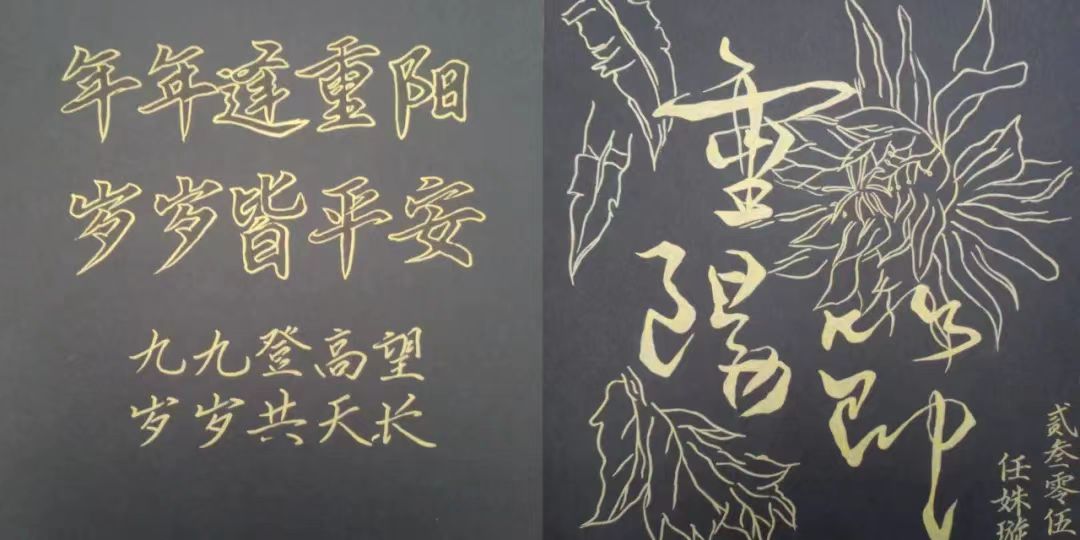 年年逢重阳
岁岁皆平安
九九登高望
岁岁共天长
重陽
節
贰叁零伍
任姝璇